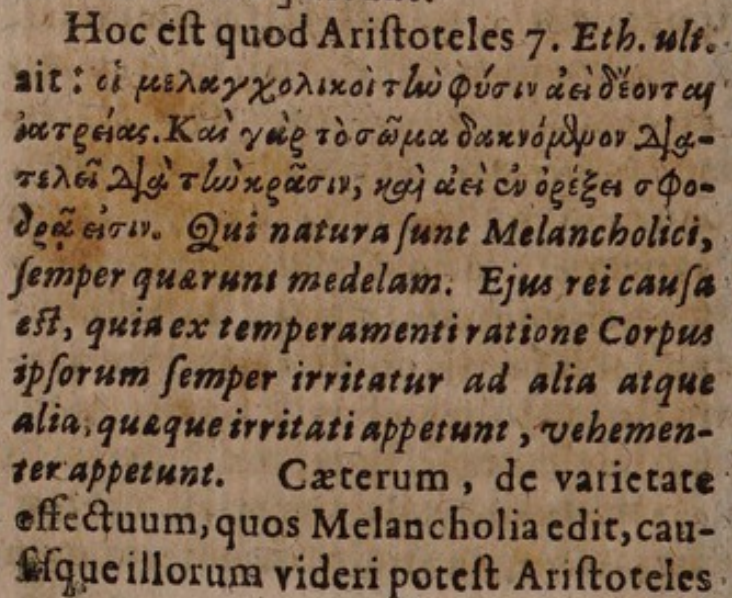 Hoc eſt quod Ariſtoteles 7. Eth. ult.
ait: οἱ μελαγχολικοὶ τὴν φύσιν ἀεὶ δέονται
ἰατρείας. Καὶ γὰρ τὸ σῶμα δακνόμενον δια-
τελεῖ διὰ τὴν κρᾶσιν, καὶ ἀεὶ ἐν ὀρέξει σφο-
δρᾷ εἰσιν. Qui natura ſunt Melancholici,
ſemper quærunt medelam. Ejus rei cauſa
eſt, quia ex temperamenti ratione Corpus
ipſorum ſemper irritatur ad alia atque
alia, quæque irritati appetunt, vehemen-
ter appetunt. Cæterum, de varietate
effectuum, quos Melancholia edit, cau-
ſiſque illorum videri poteſt Ariſtoteles